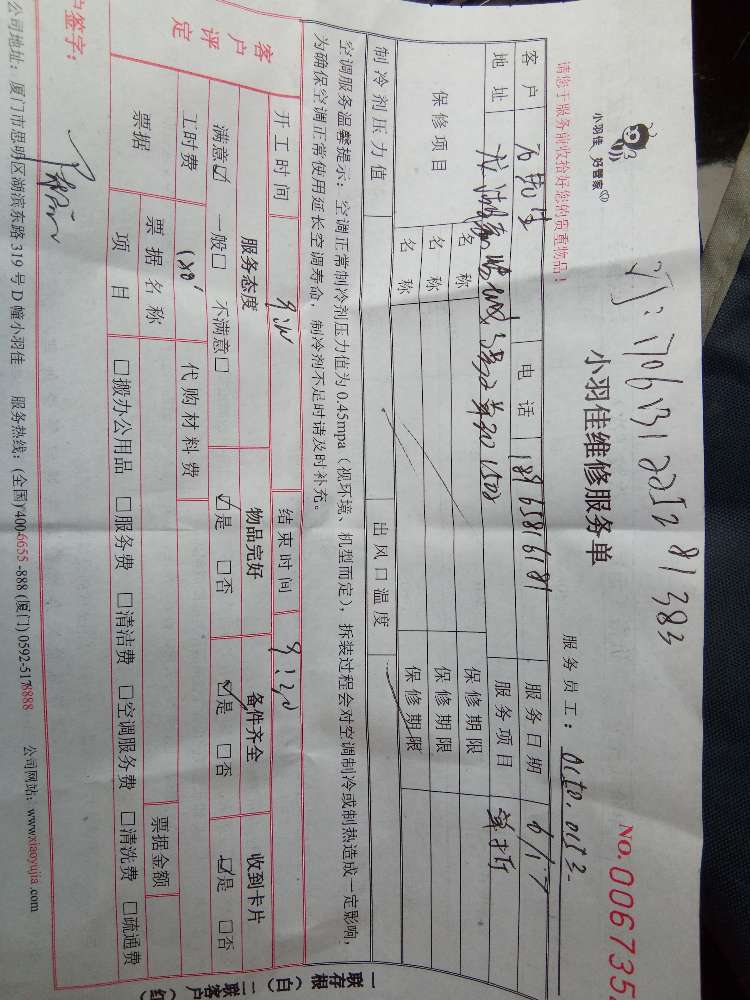 小羽佳 好管家
请您于服务前收拾好您的贵重物品！
小羽佳维修服务单
服务员工：
NO.006735
客户 电话 服务日期 6/17
地址 服务项目 单拆
保修项目 名称 保修期限
名称 保修期限
名称 保修期限
制冷剂压力值 出风口温度
空调服务温馨提示：空调正常制冷剂压力值为0.45mpa（视环境、机型而定），拆装过程会对空调制冷或制热造成一定影响，
为确保空调正常使用延长空调寿命，制冷剂不足时请及时补充。
开工时间 结束时间
客户评定 服务态度 物品完好 备件齐全 收到卡片
满意☑ 一般□ 不满意□ ☑是 □否 ☑是 □否 ☑是 □否
工时费 代购材料费
票据 票据名称 票据金额
项目 □搬办公用品 □服务费 □清洁费 □空调服务费 □清洗费 □疏通费
户签字：
公司地址：厦门市思明区湖滨东路319号D幢小羽佳 服务热线：(全国)400-6655-888 (厦门) 0592-5178888 公司网站：www.xiaoyujia.com
一联存根（白）二联客户（红